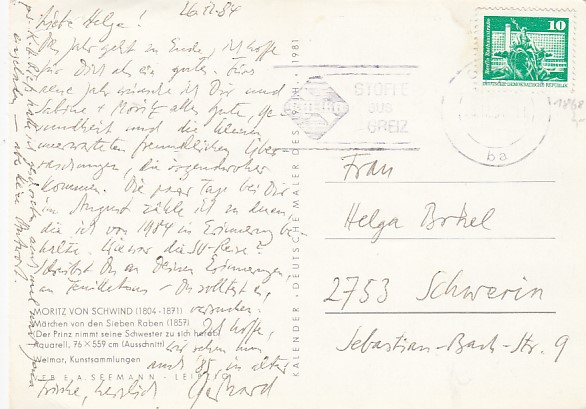 26.12.84
Liebe Helga!
Das Jahr geht zu Ende, ich hoffe
für Dich als ein gutes. Fürs
neue Jahr wünsche ich Dir und
Sabine + Moritz alles Gute, Ge-
sundheit und die kleinen
unerwarteten freundlichen Über-
raschungen, die irgendwoher
kommen. Die paar Tage bei Dir
im August zähle ich zu denen,
die ich von 1984 in Erinnerung be-
halte. Wie war die SU-Reise?
Schreibst Du an Deinen Erinnerungen,
an Feuilletons – Du solltest es,
versuchen.
Ich hoffe,
wir sehen uns
auch '85 in alter
Frische, herzlich Gerhard
MORITZ VON SCHWIND (1804-1871)
Märchen von den Sieben Raben (1857)
(Der Prinz nimmt seine Schwester zu sich herauf)
Aquarell, 76 × 559 cm (Ausschnitt)
Weimar, Kunstsammlungen
VEB E.A. SEEMANN - LEIPZIG
KALENDER · DEUTSCHE MALER DES 1981
STOFFE
aus
GREIZ
10
DEUTSCHE DEMOKRATISCHE REPUBLIK
ba
Frau
Helga
2753 Schwerin
Sebastian-Bach-Str. 9